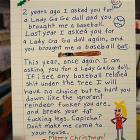 2 years ago I asked you for
a Lady Ga Ga doll and you
brought me a baseball.
Last year I asked you for
a Lady Ga Ga doll again, and
you brought me a baseball bat
This year, once again I am
asking you for a Lady Ga Ga doll.
If I see any baseball related
shit under the Tree I will
have no choice but to hurt you
down like the ignorant
reindeer fooker you are,
and break your fat
fucking legs. Capiche?
Don't make me come to
your house.
Merry Christmas!